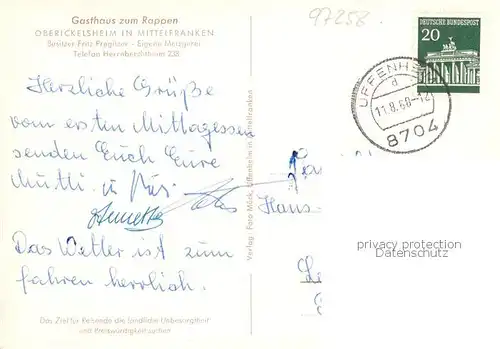 Gasthaus zum Rappen
OBERICKELSHEIM IN MITTELFRANKEN
Besitzer Fritz Pregitzer - Eigene Metzgerei
Telefon Herrnberchtheim 238
97258.
DEUTSCHE BUNDESPOST
20
UFFENHEIM
d
11.8.68-12
8704
Herzliche Grüße
vom ersten Mittagessen
senden Euch Eure
Mutti u
Annette
Hans
Das Wetter ist zum
fahren herrlich.
Verlag: Foto Möck, Uffenheim in Mittelfranken
privacy protection
Datenschutz
Das Ziel für Reisende die ländliche Unbesorgtheit
und Preiswürdigkeit suchen